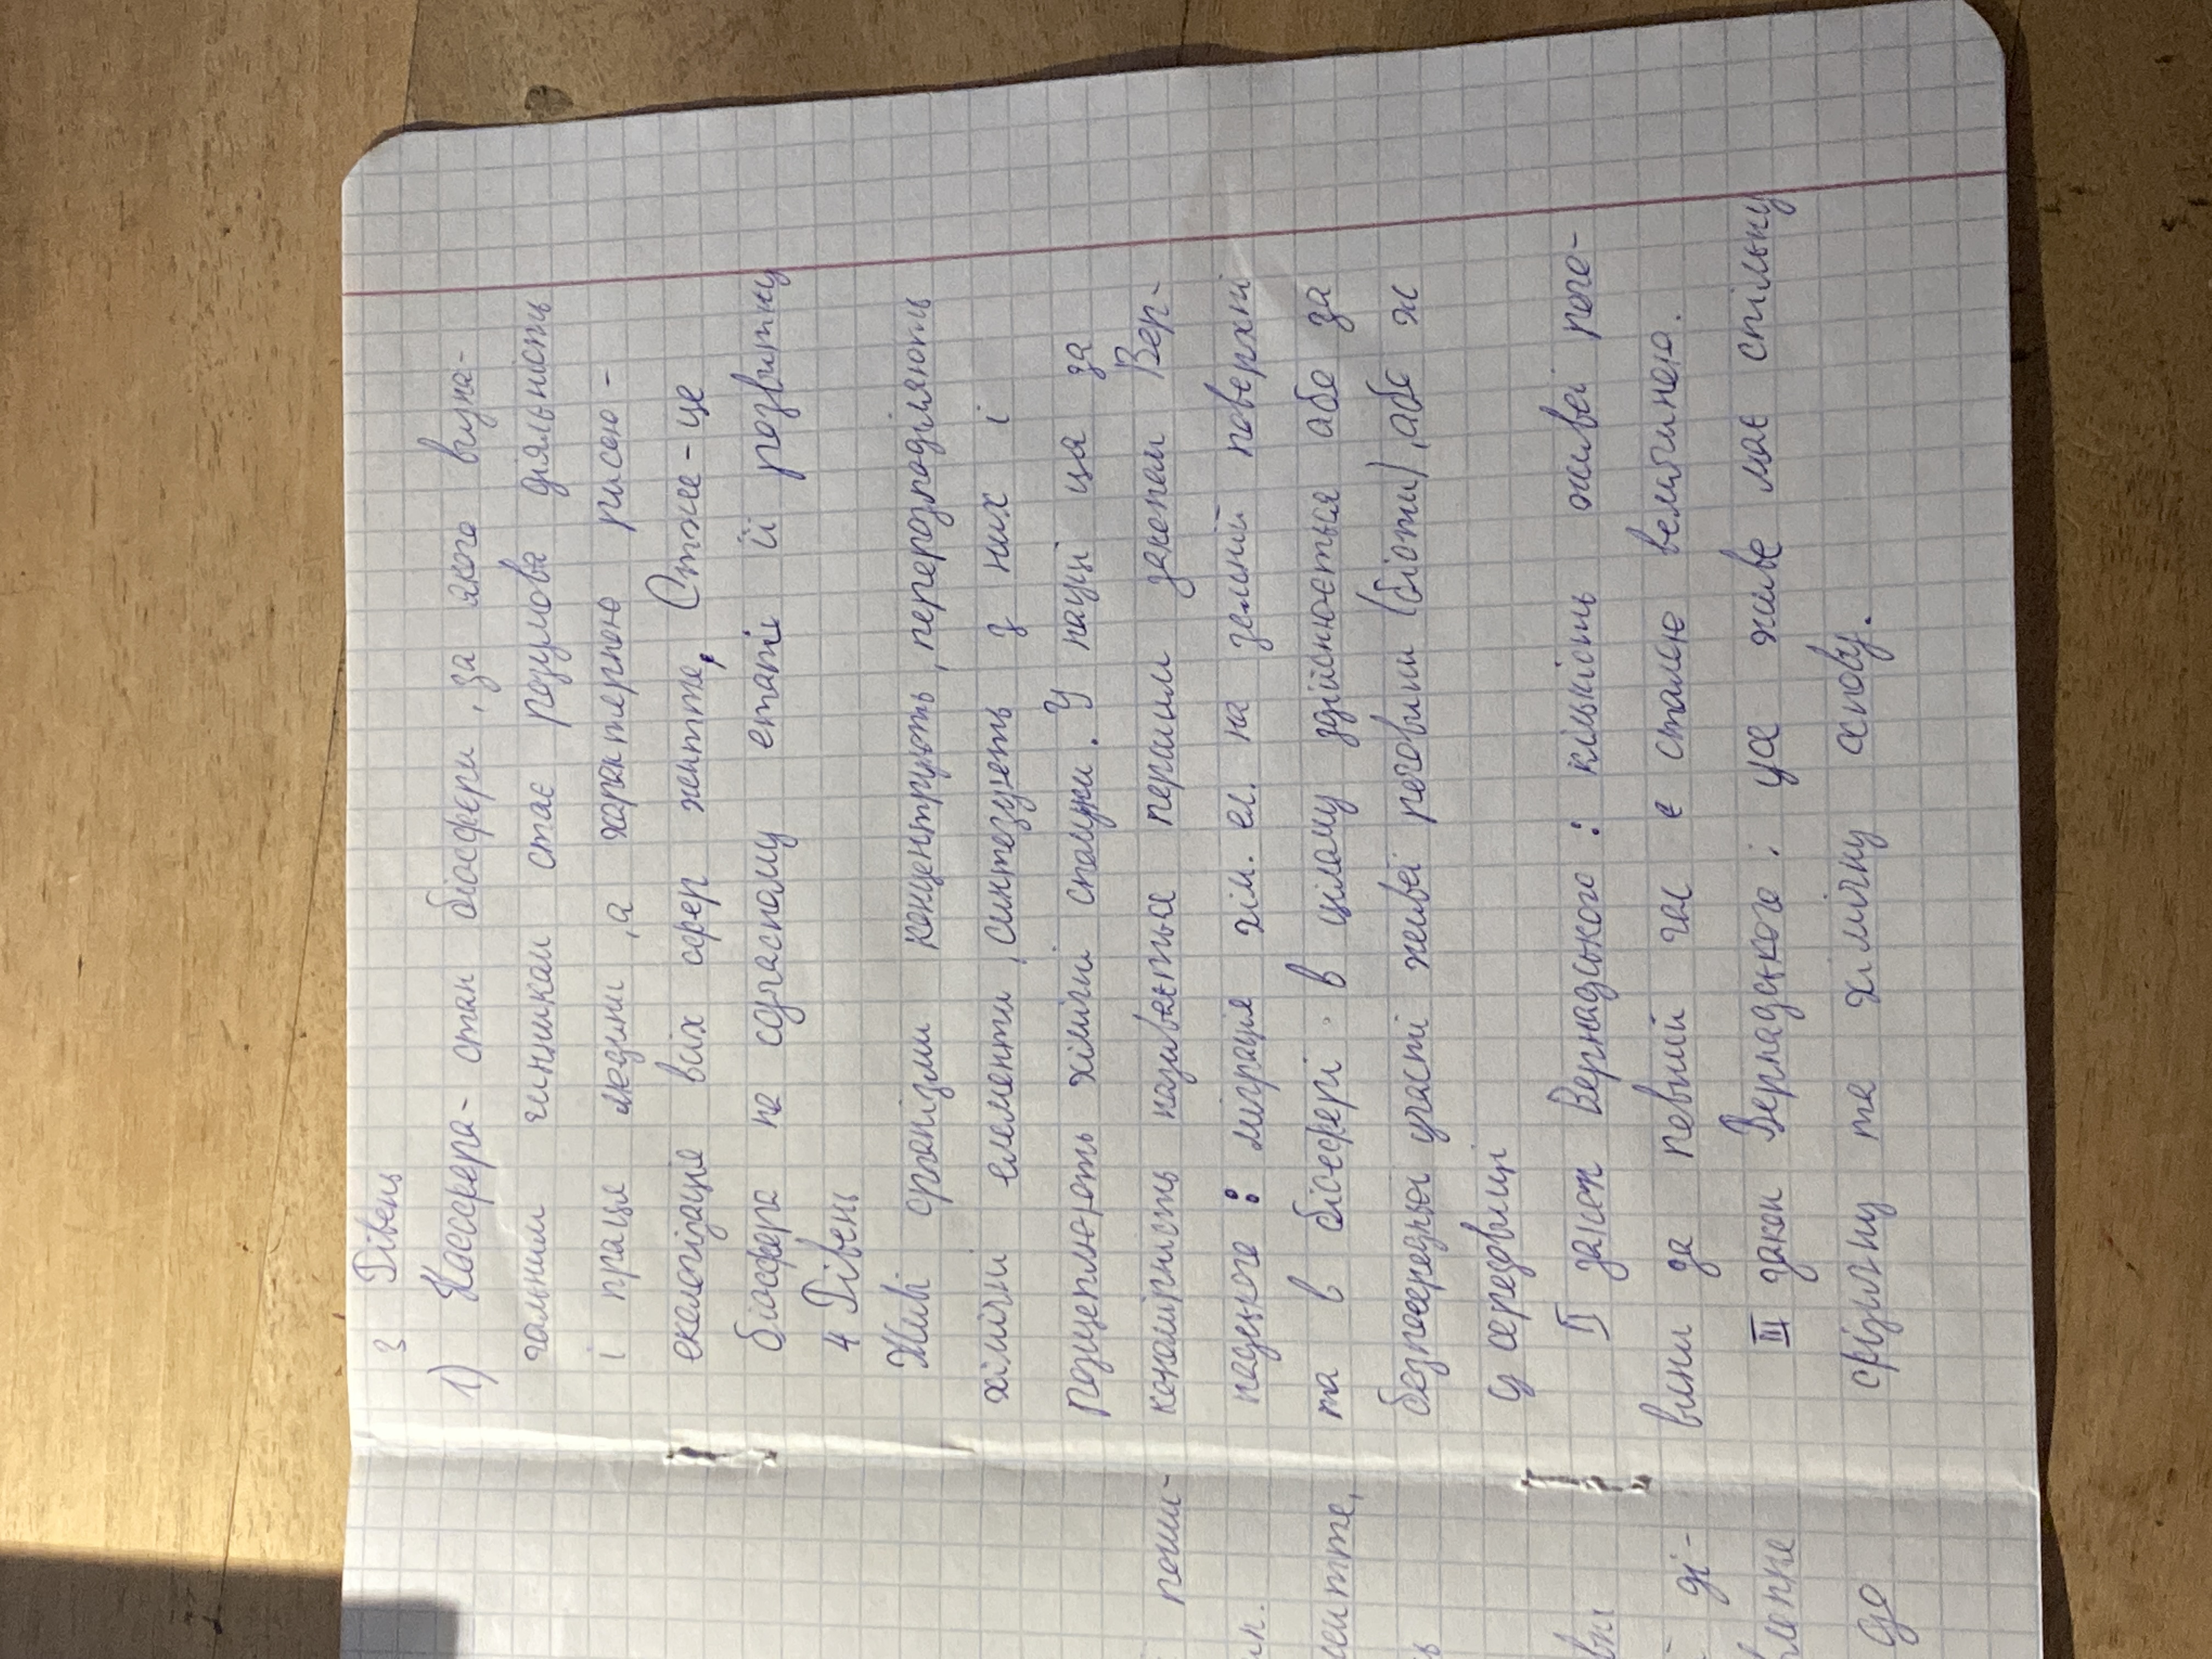 3 Рівень
1) Ноосфера - стан біосфери, за якого визна-
чальним чинником стає розумова діяльність
і праця людини, а характерною рисою -
екологізація всіх сфер життя, Отже - це
біосфера на сучасному етапі її розвитку
4 Рівень
Живі організми концентрують, перерозподіляють
хімічні елементи, синтезують з них і
розщеплюють хімічні сполуки. У науці ця за
кономірність називається першим законом Вер-
надського: міграція хім. ел. на земній поверхні
та в біосфері в цілому здійснюється або за
безпосередньої участі живої речовини (біоти), або ж
у середовищі
II закон Вернадського: кількість живої рече-
вини за певний час є сталою величиною.
III закон Вернадського: усе живе має спільну
фізичну та хімічну основу.
поши-
ик.
життя,
ь
вни
ді-
влення
до